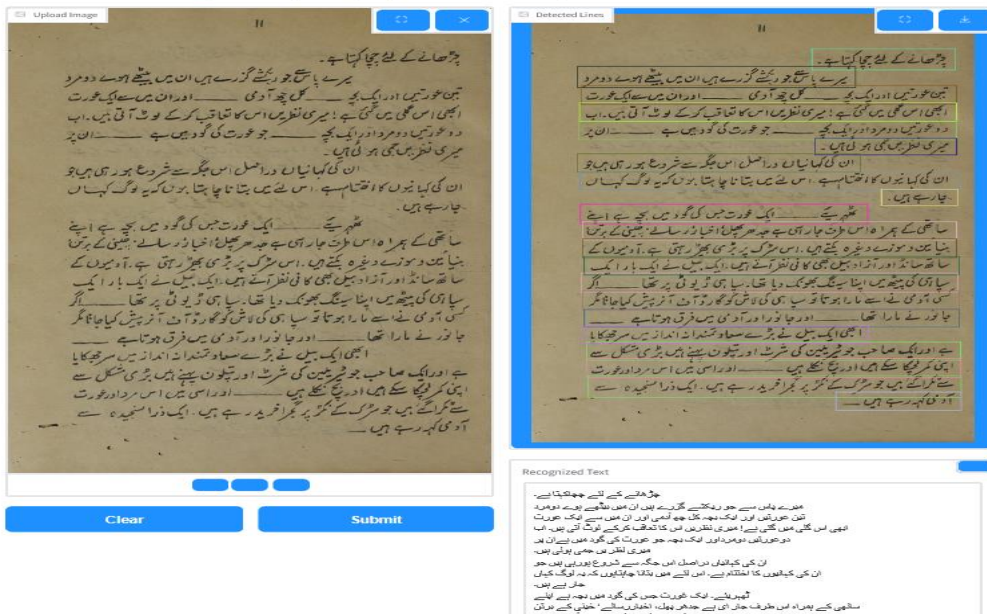 Upload Image
11
چڑھانے کے لئے چچا کہتا ہے۔
میرے پاس جو رکشے گزرے ہیں ان میں بیٹھے ہوے دو مرد
تین عورتیں اور ایک بچہ ــــ کل چھ آدمی ــــ اور ان میں سے ایک عورت
ابھی اس گلی میں گئی ہے! میری نظریں اس کا تعاقب کرکے لوٹ آتی ہیں۔ اب
دو عورتیں دو مرد اور ایک بچہ ــــ جو عورت کی گود میں ہے ــــ ان پر
میری نظریں جمی ہوئی ہیں۔
ان کی کہانیاں دراصل اس جگہ سے شروع ہو رہی ہیں جو
ان کی کہانیوں کا اختتام ہے۔ اس لئے میں بتانا چاہتا ہوں کہ یہ لوگ کہاں
جا رہے ہیں۔
ٹھہریئے ــــ ایک عورت جس کی گود میں بچہ ہے اپنے
ساتھی کے ہمراہ اس طرف جا رہی ہے جدھر پھل، اخبار، رسالے، چینی کے برتن
بنیائین و موزے وغیرہ بکتے ہیں۔ اس سڑک پر بڑی بھیڑ رہتی ہے۔ آدمیوں کے
ساتھ سانڈ اور آزاد بیل بھی کافی نظر آتے ہیں۔ ایک بیل نے ایک بار ایک
سپاہی کی پیٹھ میں اپنا سینگ بھونک دیا تھا۔ سپاہی ڈیوٹی پر تھا ــــ اگر
کسی آدمی نے اسے مارا ہوتا تو سپاہی کی لاش کو گارڈ آف آنر پیش کیا جاتا مگر
جانور نے مارا تھا ــــ اور جانور اور آدمی میں فرق ہوتا ہے ــــ
ابھی ایک بیل نے بڑے سعادتمندانہ انداز میں سر جھکایا
ہے اور ایک صاحب جو ٹیریلین کی شرٹ اور پتلون پہنے ہیں بڑی مشکل سے
اپنی کمر لچکا سکے ہیں اور بچ نکلے ہیں ــــ اور اسی میں اس مرد اور عورت
سے ٹکرا گئے ہیں جو سڑک کے نکڑ پر گجرا خرید رہے ہیں۔ ایک ذرا سنجیدہ سے
آدمی کہہ رہے ہیں ــــ
Clear
Submit
Detected Lines
11
چڑھانے کے لئے چچا کہتا ہے۔
میرے پاس جو رکشے گزرے ہیں ان میں بیٹھے ہوے دو مرد
تین عورتیں اور ایک بچہ ــــ کل چھ آدمی ــــ اور ان میں سے ایک عورت
ابھی اس گلی میں گئی ہے! میری نظریں اس کا تعاقب کرکے لوٹ آتی ہیں۔ اب
دو عورتیں دو مرد اور ایک بچہ ــــ جو عورت کی گود میں ہے ــــ ان پر
میری نظریں جمی ہوئی ہیں۔
ان کی کہانیاں دراصل اس جگہ سے شروع ہو رہی ہیں جو
ان کی کہانیوں کا اختتام ہے۔ اس لئے میں بتانا چاہتا ہوں کہ یہ لوگ کہاں
جا رہے ہیں۔
ٹھہریئے ــــ ایک عورت جس کی گود میں بچہ ہے اپنے
ساتھی کے ہمراہ اس طرف جا رہی ہے جدھر پھل، اخبار، رسالے، چینی کے برتن
بنیائین و موزے وغیرہ بکتے ہیں۔ اس سڑک پر بڑی بھیڑ رہتی ہے۔ آدمیوں کے
ساتھ سانڈ اور آزاد بیل بھی کافی نظر آتے ہیں۔ ایک بیل نے ایک بار ایک
سپاہی کی پیٹھ میں اپنا سینگ بھونک دیا تھا۔ سپاہی ڈیوٹی پر تھا ــــ اگر
کسی آدمی نے اسے مارا ہوتا تو سپاہی کی لاش کو گارڈ آف آنر پیش کیا جاتا مگر
جانور نے مارا تھا ــــ اور جانور اور آدمی میں فرق ہوتا ہے ــــ
ابھی ایک بیل نے بڑے سعادتمندانہ انداز میں سر جھکایا
ہے اور ایک صاحب جو ٹیریلین کی شرٹ اور پتلون پہنے ہیں بڑی مشکل سے
اپنی کمر لچکا سکے ہیں اور بچ نکلے ہیں ــــ اور اسی میں اس مرد اور عورت
سے ٹکرا گئے ہیں جو سڑک کے نکڑ پر گجرا خرید رہے ہیں۔ ایک ذرا سنجیدہ سے
آدمی کہہ رہے ہیں ــــ
Recognized Text
چڑھانے کے لئے چچاکہتا ہے۔
میرے پاس سے جو ریکشے گزرے ہیں ان میں بیٹھے ہوے دومرد
تین عورتیں اور ایک بچہ کل چھ آدمی اور ان میں سے ایک عورت
ابھی اس گلی میں گئی ہے! میری نظریں اس کا تعاقب کرکے لوٹ آتی ہیں۔ اب
دوعورتیں دومرداور ایک بچہ جو عورت کی گود میں ہےان پر
میری نظر یں جمی ہوئی ہیں۔
ان کی کہانیاں دراصل اس جگہ سے شروع ہورہی ہیں جو
ان کی کہانیوں کا اختتام ہے۔ اس لئے میں بتانا چاہتاہوں کہ یہ لوگ کہاں
جار ہے ہیں۔
ٹھہریئے۔ ایک عورت جس کی گود میں بچہ ہے اپنے
ساتھی کے ہمراہ اس طرف جار ای ہے جدھر پھل، اخباررسالے، خینی کے برتن